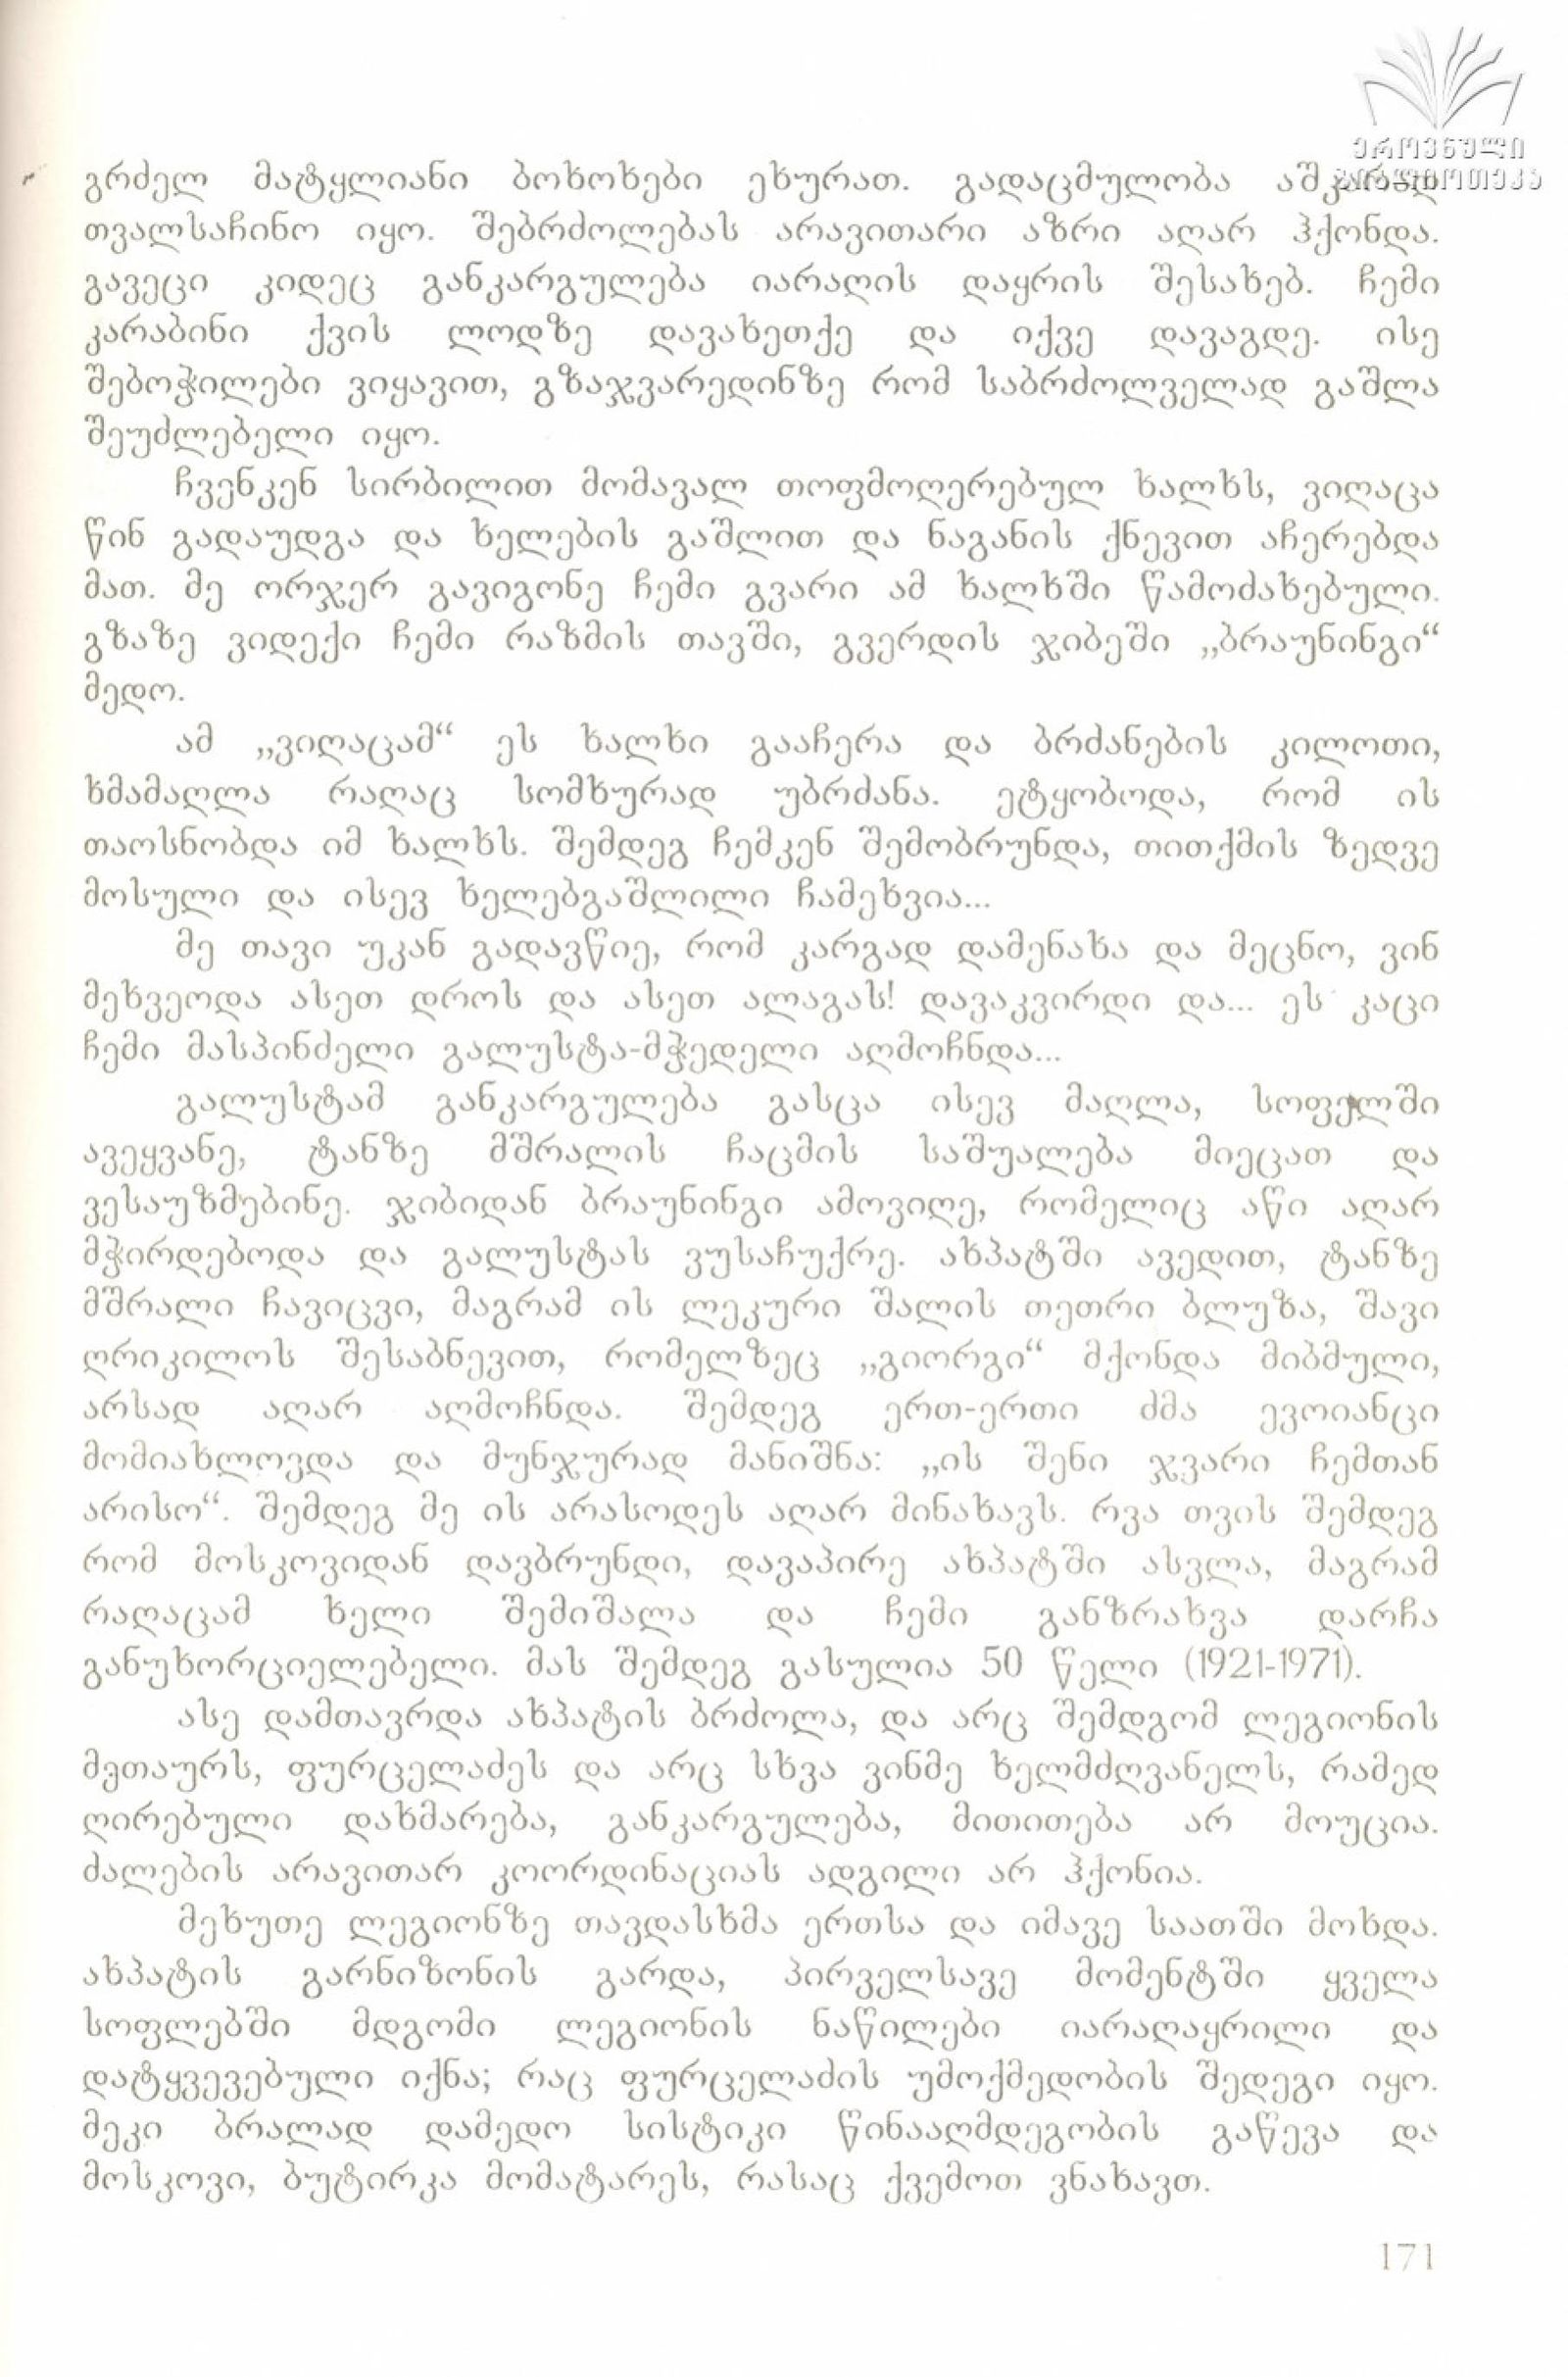 ეროვნული
ბიბლიოთეკა
გრძელ მატყლიანი ბოხოხები ეხურათ. გადაცმულობა აშკარად
თვალსაჩინო იყო. შებრძოლებას არავითარი აზრი აღარ ჰქონდა.
გავეცი კიდეც განკარგულება იარაღის დაყრის შესახებ. ჩემი
კარაბინი ქვის ლოდზე დავახეთქე და იქვე დავაგდე. ისე
შებოჭილები ვიყავით, გზაჯვარედინზე რომ საბრძოლველად გაშლა
შეუძლებელი იყო.
ჩვენკენ სირბილით მომავალ თოფმოღერებულ ხალხს, ვიღაცა
წინ გადაუდგა და ხელების გაშლით და ნაგანის ქნევით აჩერებდა
მათ. მე ორჯერ გავიგონე ჩემი გვარი ამ ხალხში წამოძახებული.
გზაზე ვიდექი ჩემი რაზმის თავში, გვერდის ჯიბეში „ბრაუნინგი“
მედო.
ამ „ვიღაცამ“ ეს ხალხი გააჩერა და ბრძანების კილოთი,
ხმამაღლა რაღაც სომხურად უბრძანა. ეტყობოდა, რომ ის
თაოსნობდა იმ ხალხს. შემდეგ ჩემკენ შემობრუნდა, თითქმის ზედვე
მოსული და ისევ ხელებგაშლილი ჩამეხვია...
მე თავი უკან გადავწიე, რომ კარგად დამენახა და მეცნო, ვინ
მეხვეოდა ასეთ დროს და ასეთ ალაგას! დავაკვირდი და... ეს კაცი
ჩემი მასპინძელი გალუსტა-მჭედელი აღმოჩნდა...
გალუსტამ განკარგულება გასცა ისევ მაღლა, სოფელში
ავეყვანე, ტანზე მშრალის ჩაცმის საშუალება მიეცათ და
ვესაუზმებინე. ჯიბიდან ბრაუნინგი ამოვიღე, რომელიც აწი აღარ
მჭირდებოდა და გალუსტას ვუსაჩუქრე. ახპატში ავედით, ტანზე
მშრალი ჩავიცვი, მაგრამ ის ლეკური შალის თეთრი ბლუზა, შავი
ღრიკილოს შესაბნევით, რომელზეც „გიორგი“ მქონდა მიბმული,
არსად აღარ აღმოჩნდა. შემდეგ ერთ-ერთი ძმა ევოიანცი
მომიახლოვდა და მუნჯურად მანიშნა: „ის შენი ჯვარი ჩემთან
არისო“. შემდეგ მე ის არასოდეს აღარ მინახავს. რვა თვის შემდეგ
რომ მოსკოვიდან დავბრუნდი, დავაპირე ახპატში ასვლა, მაგრამ
რაღაცამ ხელი შემიშალა და ჩემი განზრახვა დარჩა
განუხორციელებელი. მას შემდეგ გასულია 50 წელი (1921-1971).
ასე დამთავრდა ახპატის ბრძოლა, და არც შემდგომ ლეგიონის
მეთაურს, ფურცელაძეს და არც სხვა ვინმე ხელმძღვანელს, რამედ
ღირებული დახმარება, განკარგულება, მითითება არ მოუცია.
ძალების არავითარ კოორდინაციას ადგილი არ ჰქონია.
მეხუთე ლეგიონზე თავდასხმა ერთსა და იმავე საათში მოხდა.
ახპატის გარნიზონის გარდა, პირველსავე მომენტში ყველა
სოფლებში მდგომი ლეგიონის ნაწილები იარაღაყრილი და
დატყვევებული იქნა; რაც ფურცელაძის უმოქმედობის შედეგი იყო.
მეკი ბრალად დამედო სისტიკი წინააღმდეგობის გაწევა და
მოსკოვი, ბუტირკა მომატარეს, რასაც ქვემოთ ვნახავთ.
171